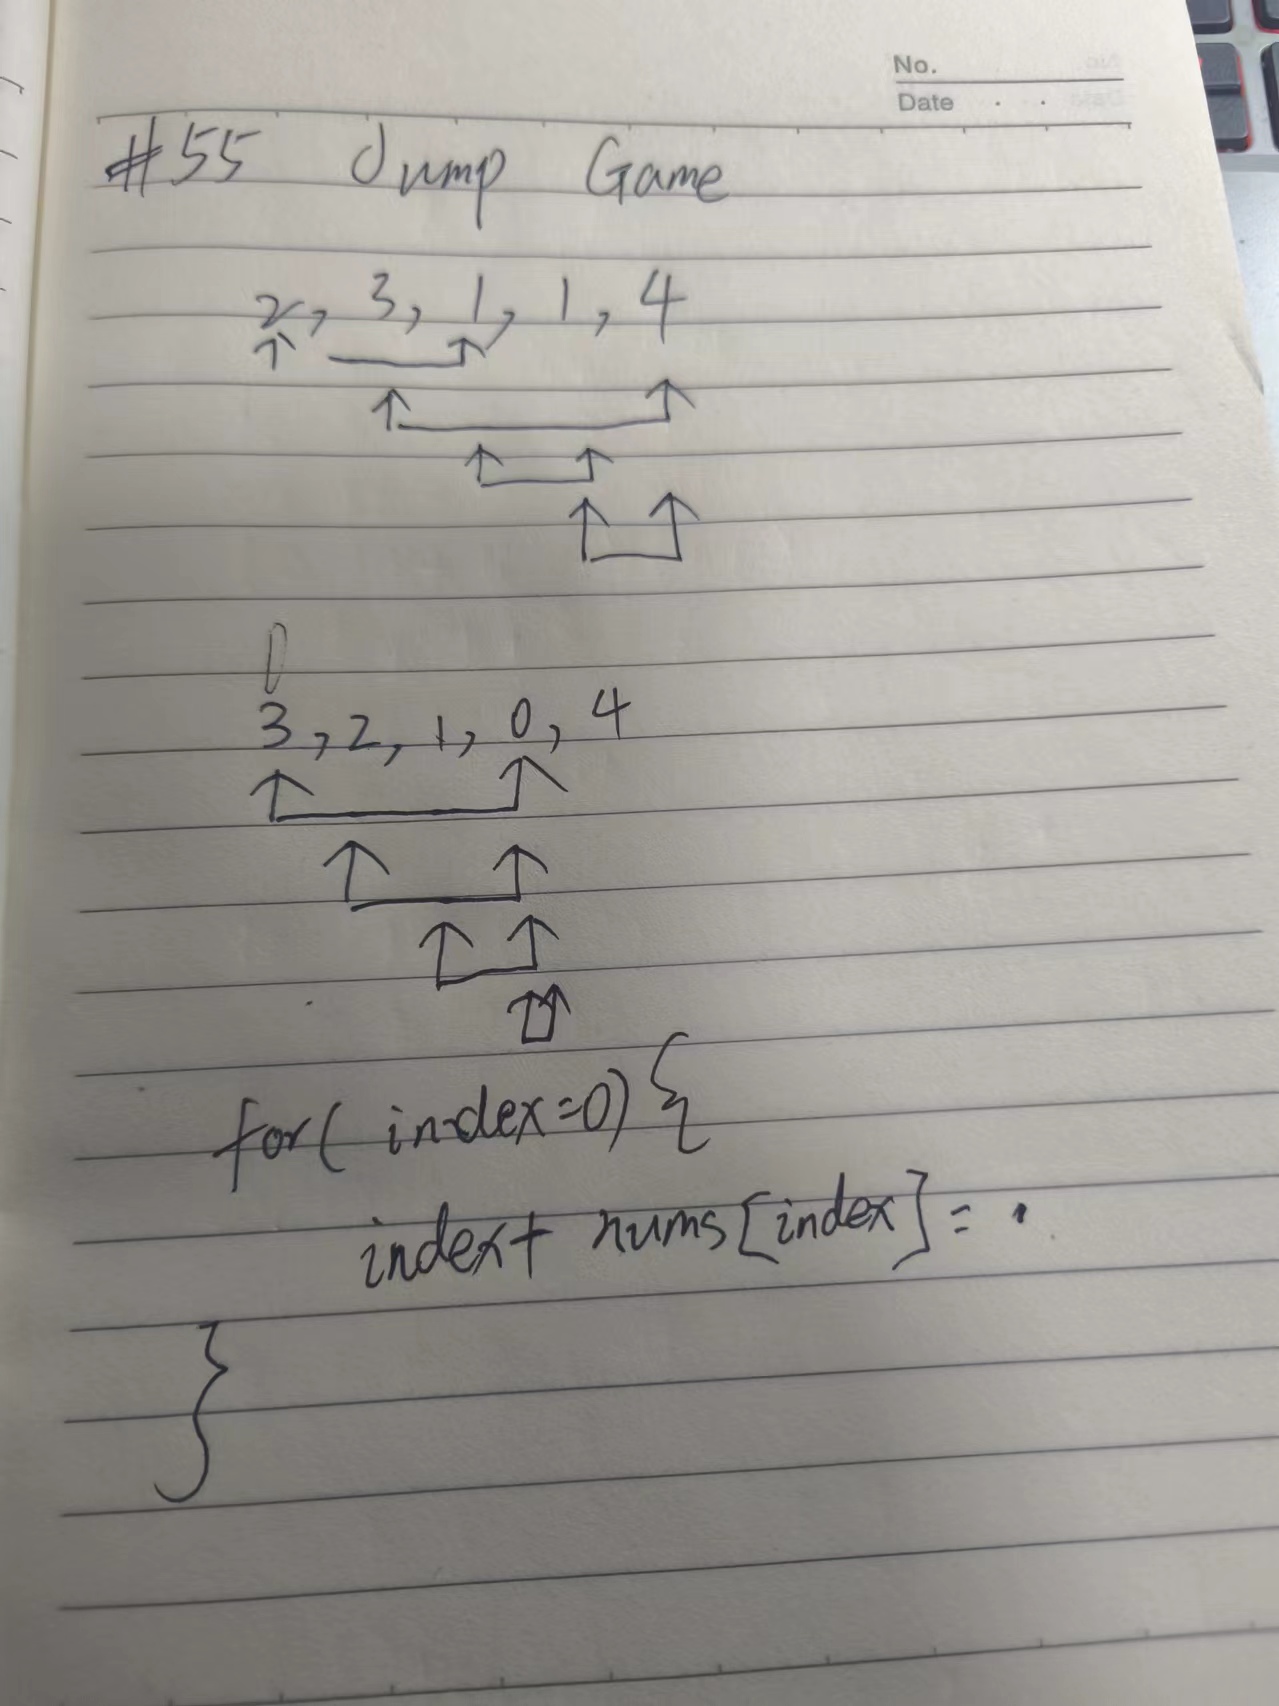 No.
Date
#55 Jump Game
2, 3, 1, 1, 4
3, 2, 1, 0, 4
for( index=0) {
index+ nums[index] = .
}